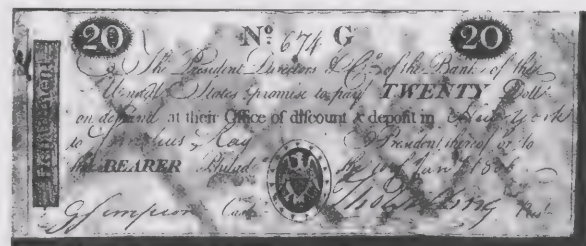 20 Nº 674 G 20
The President Directors & Cº of the Bank of the
United States promise to pay TWENTY Dolls
on demand at their Office of discount & deposit in New York
to Cornelius Ray President thereof or to
the BEARER Philadª the Jan
G Simpson Cashr Tho Willing Prest